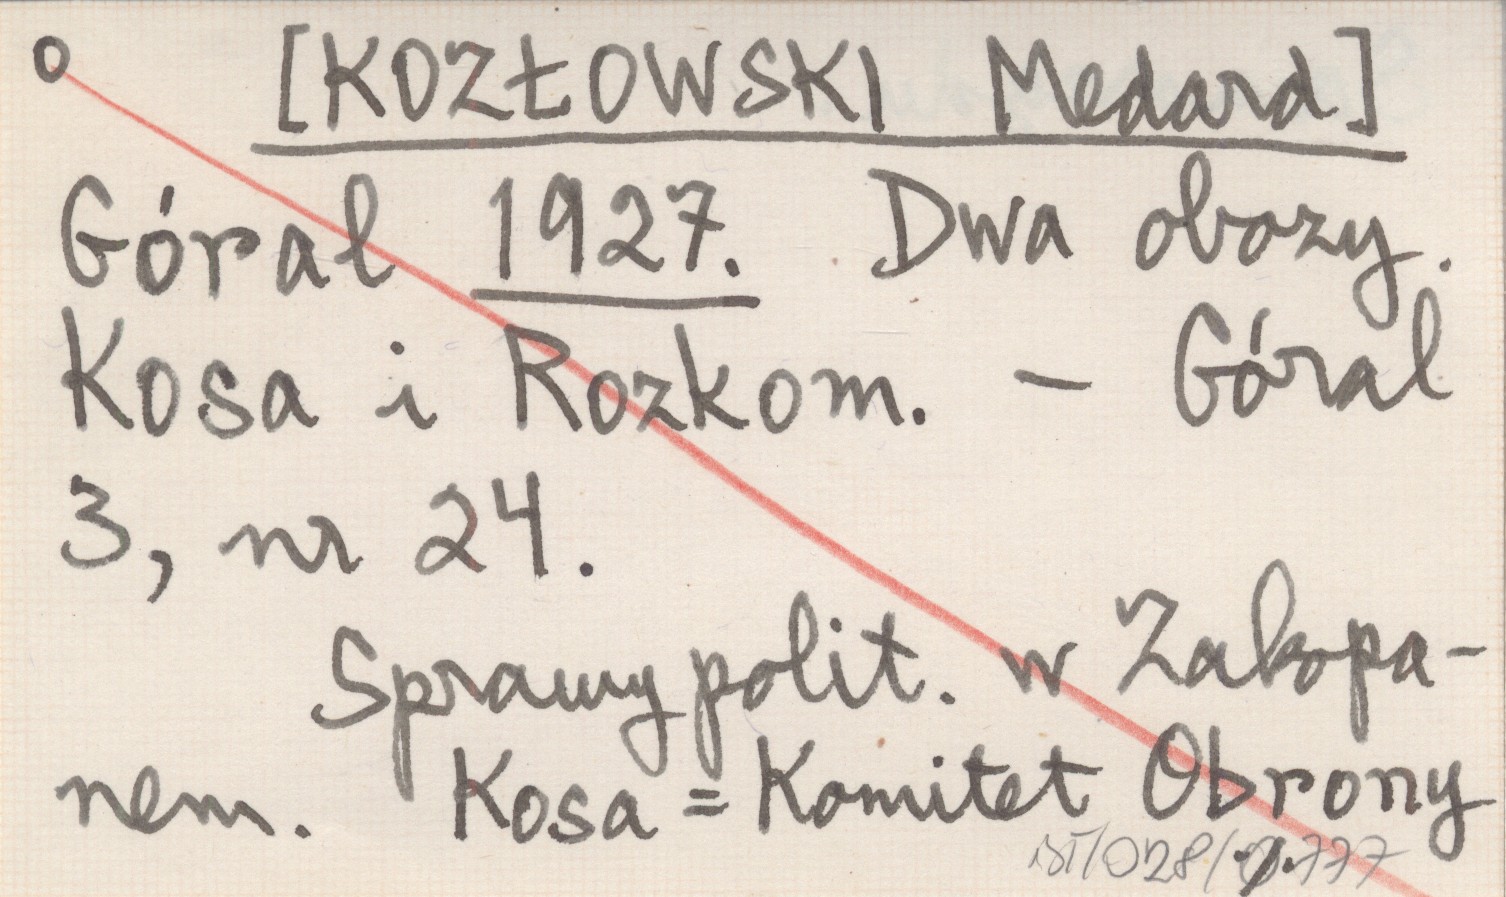 o [KOZŁOWSKI Medard]
Górał 1927. Dwa obozy.
Kosa i Rozkom. – Góral
3, nr 24.
Sprawy polit. w Zakopa-
nem. Kosa = Komitet Obrony